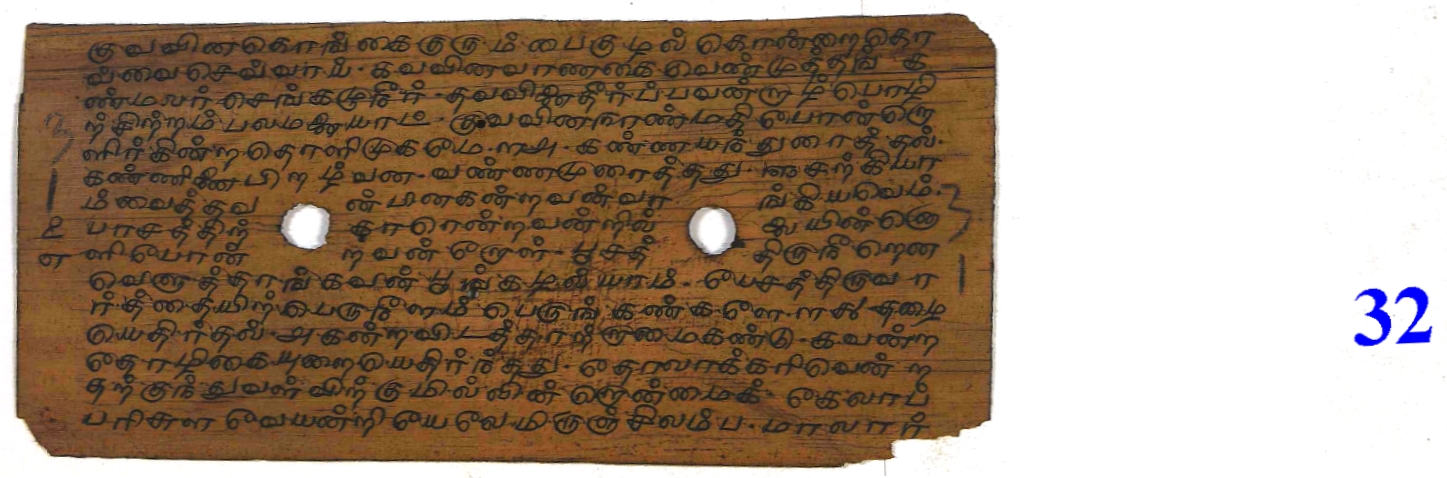 குவவினகொங்கைகுரும்பைகுழல் கொன்றைகொ
வ்வைசெவ்வாய் கவவினவாணகைவெண்முத்தங் க
ண்மலர் செங்கழுநீர் தவவினைதீர்ப்பவன்றாழ்பொழி
ற்சிற்றம்பலமனையாட் குவவினநாண்மதிபோன்றொ
ளிர்கின்றதொளிமுகமே ௱௮ கண்ணயந்துரைத்தல்
கண்ணிணைபிறழ்வன வண்ணமுரைத்தது ஈசற்கியா
ம்வைத்தவ ன்பினகன்றவன்வா ங்கியவெம்
உ பாசத்திற் காரென்றவன்றில் லையின்னொ
ளிபோன் றவன்றோள் பூசத் திருநீறென
வெளுத்தாங்கவன்பூங்கழல்யாம் பேசத்திருவா
ர்த்தையிற்பெருநீளம் பெருங்கண்களே ௱௯ தழை
யெதிர்தல் அகன்றவிடத்தாற்றாமைகண்டு கவன்ற
தோழிகையுறையெதிர்ந்தது தோலாக்கரிவென்ற
தற்குந்துவள்விற்குமில்லின்றொன்மைக் கேலாப்
பரிசுளவேயன்றியேலேமிருஞ்சிலம்ப மாலார்
32